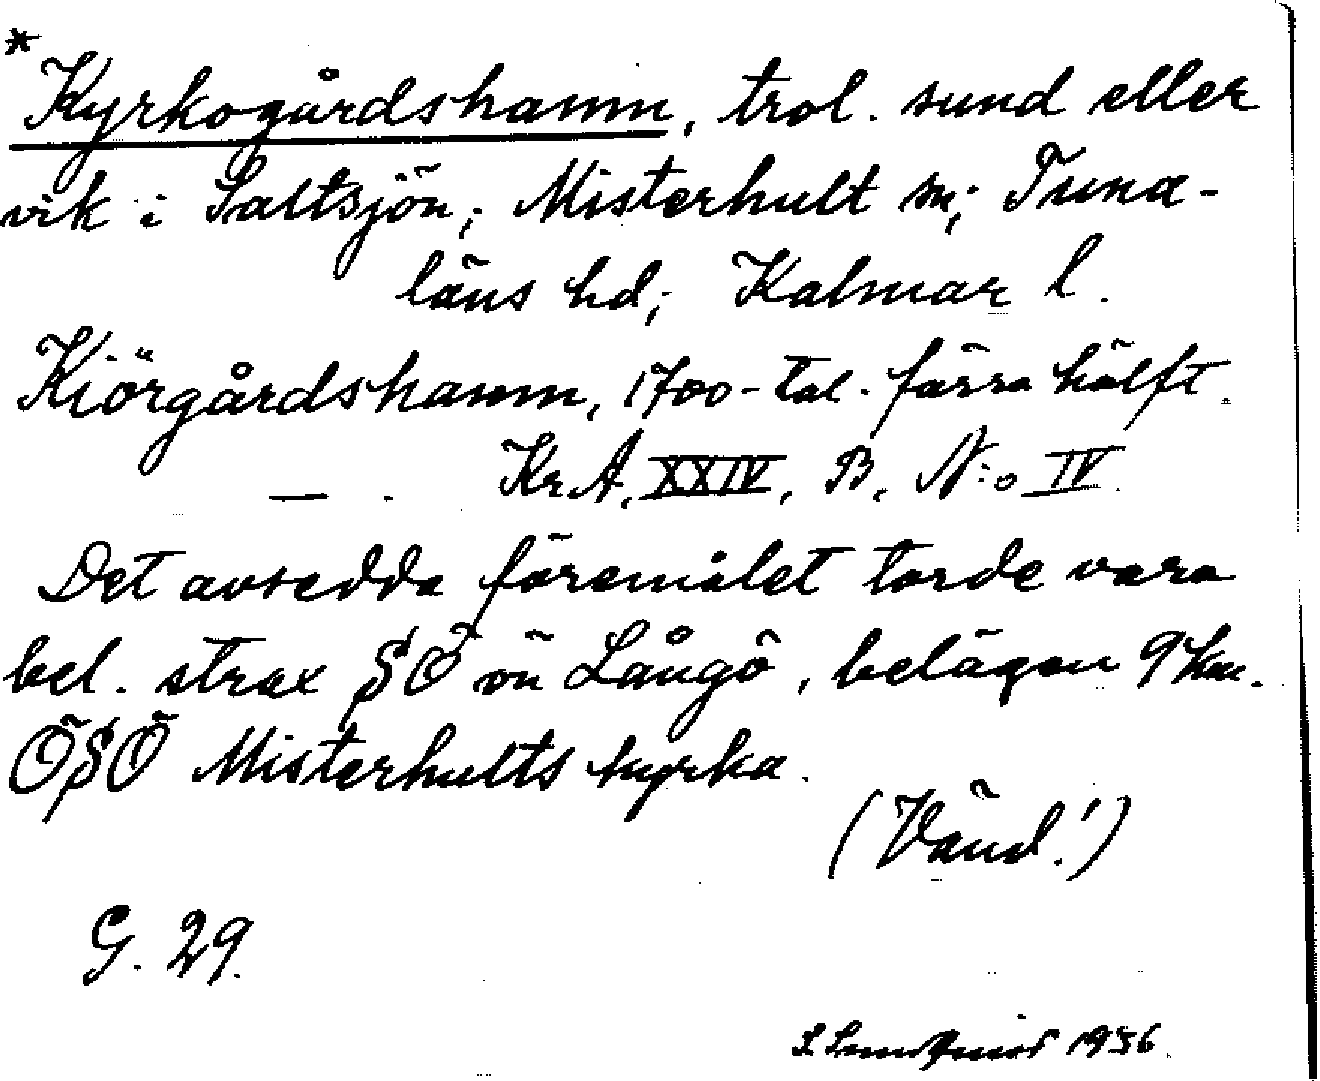 *
Kyrkogårdshamn, trol. sund eller
vik i Saltsjön; Misterhult sn; Tuna-
läns hd; Kalmar l.
Kiörgårdshamn, 1700-tal. förra hälft.
— . Kr.A. XXIV, B, N:o IV.
Det avsedda föremålet torde vara
bel. strax SÖ ön Långö, belägen 9 km.
ÖSÖ Misterhults kyrka.
(Vänd!)
G. 29.
1936